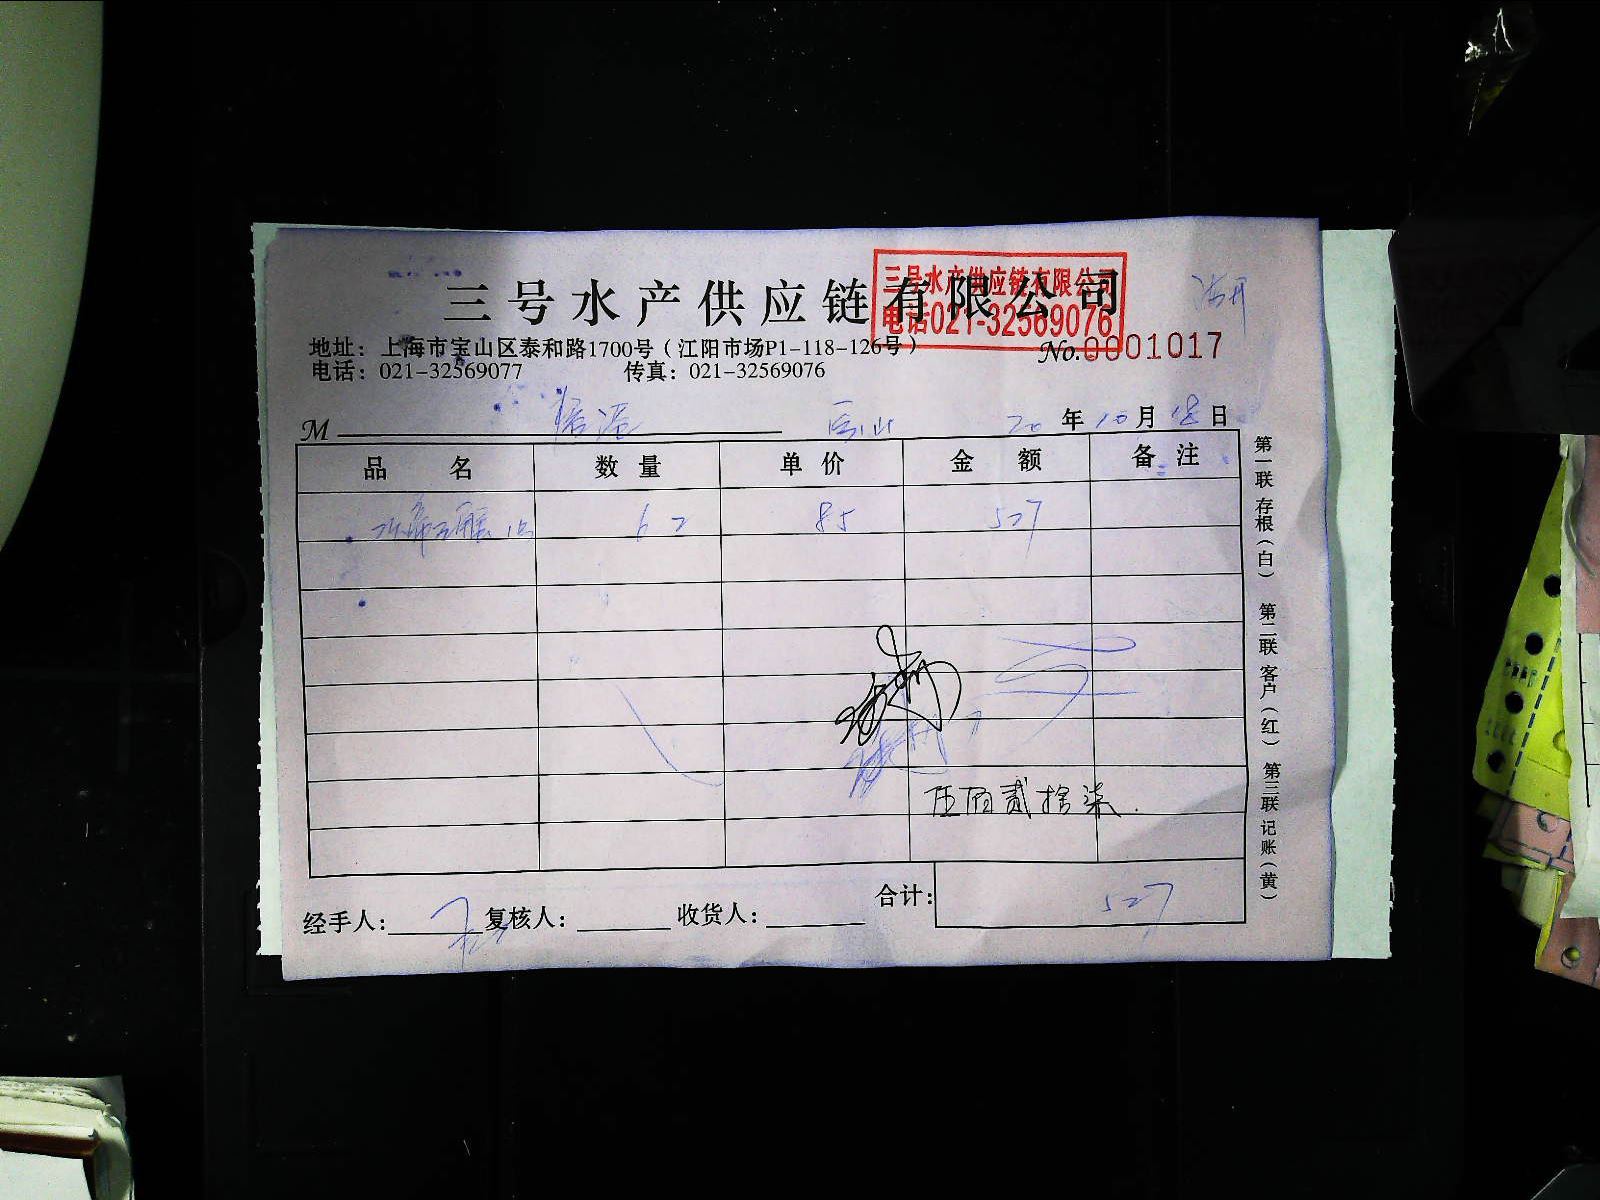 三号水产供应链有限公司
三号水产供应链有限公司
电话021-32569076
地址：上海市宝山区泰和路1700号（江阳市场P1-118-126号）
No.0001017
电话：021-32569077 传真：021-32569076
M 宝山 20年10月18日
品名 数量 单价 金额 备注
62 85 527
伍佰贰拾柒.
合计：527
经手人： 复核人： 收货人：
第一联 存根（白） 第二联 客户（红） 第三联 记账（黄）